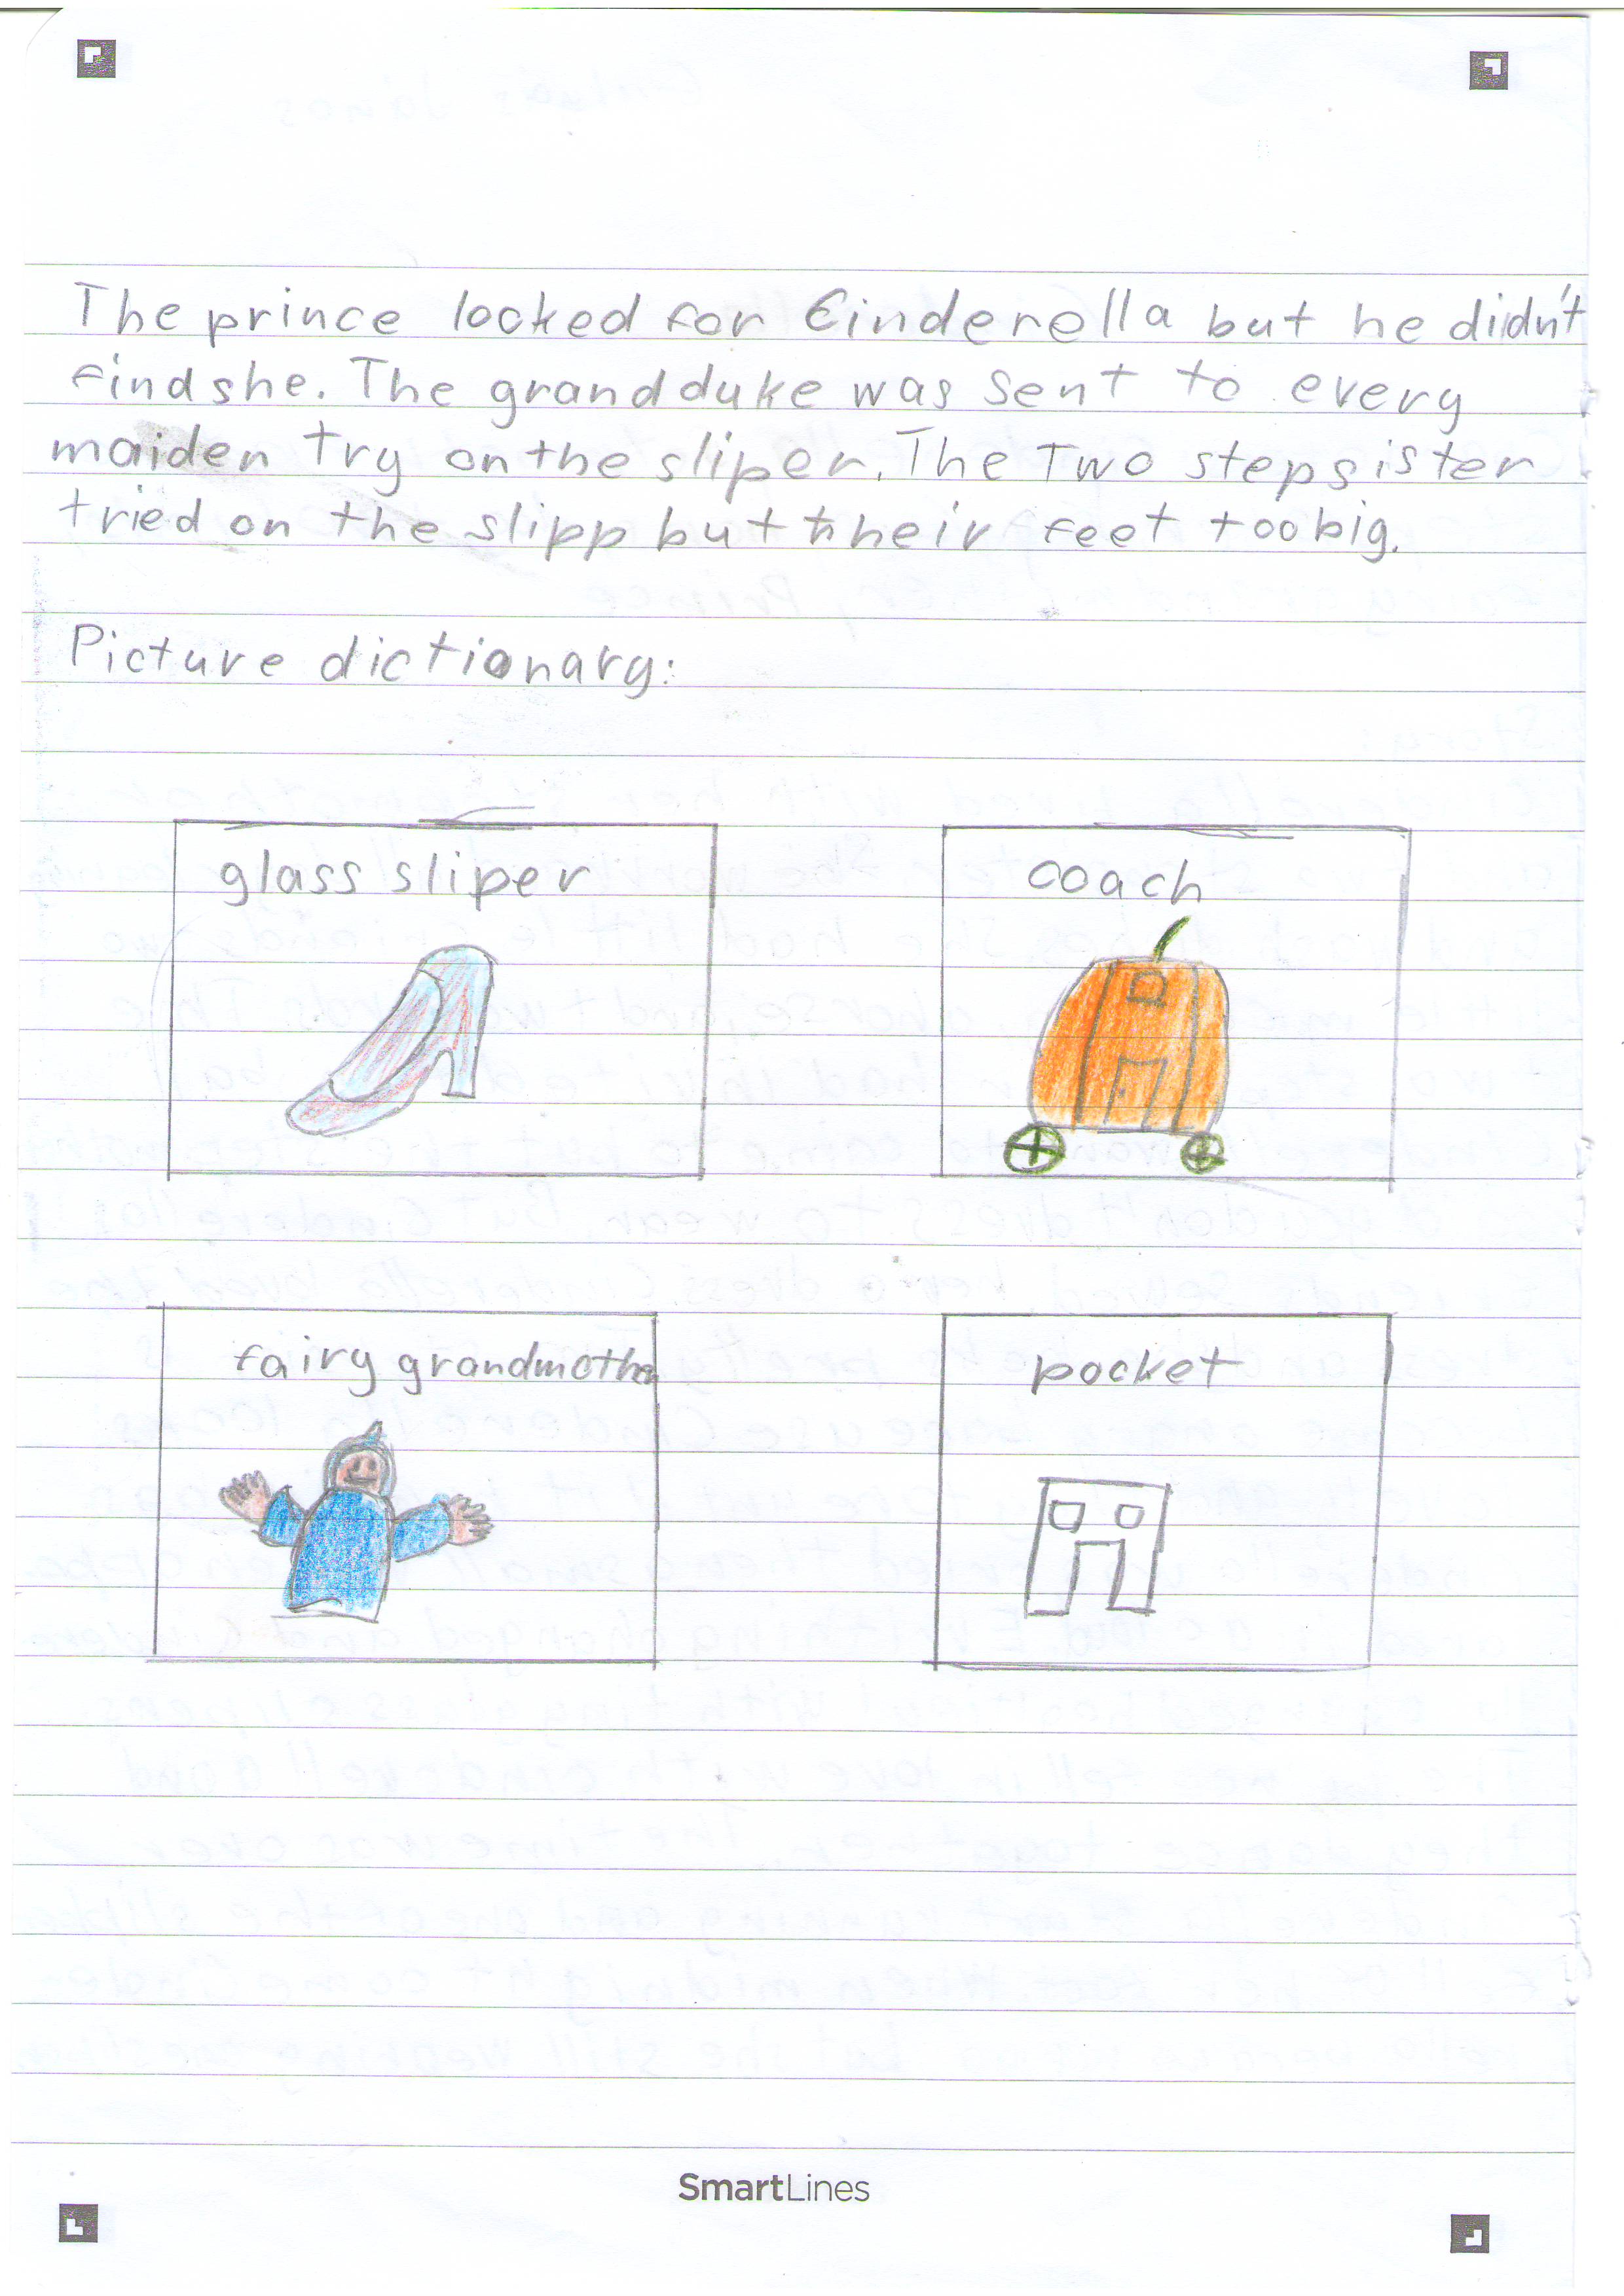 The prince locked for Cinderella but he didn't
find she. The grand duke was sent to every
maiden try on the sliper. The Two stepsister
tried on the slipp but their feet too big.
Picture dictionary:
glass sliper
coach
fairy grandmother
pocket
SmartLines